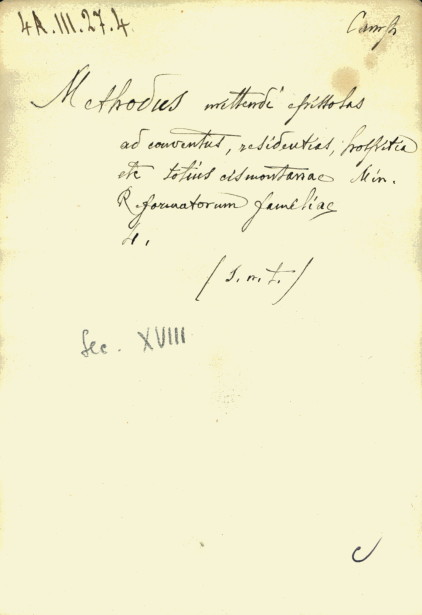 4A.III.27.4.
Methodus mittendi epistolas
ad conventus, residentias, hospitia
etc totius cismontanae Min.
Reformatorum familiae
4.
(S. m. t.)
Sec. XVIII